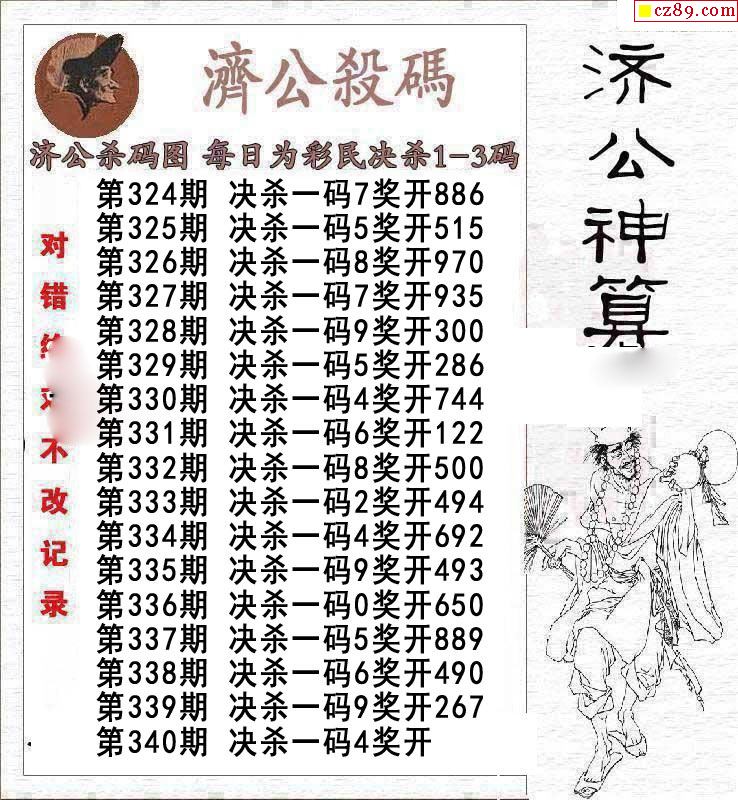 cz89.com
濟公殺碼
济公杀码图 每日为彩民决杀1-3码
第324期 决杀一码7奖开886
第325期 决杀一码5奖开515
第326期 决杀一码8奖开970
第327期 决杀一码7奖开935
第328期 决杀一码9奖开300
第329期 决杀一码5奖开286
第330期 决杀一码4奖开744
第331期 决杀一码6奖开122
第332期 决杀一码8奖开500
第333期 决杀一码2奖开494
第334期 决杀一码4奖开692
第335期 决杀一码9奖开493
第336期 决杀一码0奖开650
第337期 决杀一码5奖开889
第338期 决杀一码6奖开490
第339期 决杀一码9奖开267
第340期 决杀一码4奖开
对错不改记录
济公神算